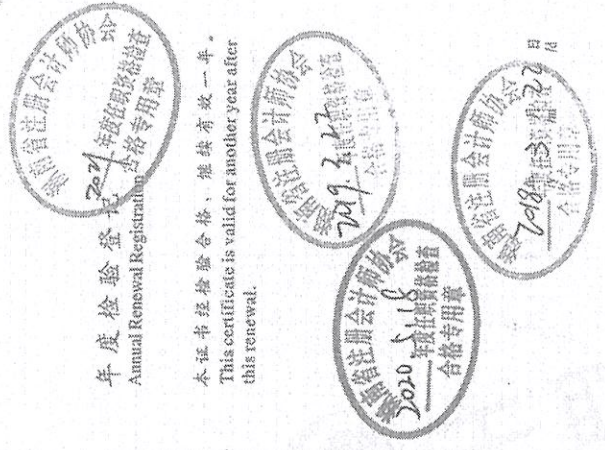 年度检验登记
Annual Renewal Registration
本证书经检验合格、继续有效一年。
This certificate is valid for another year after
this renewal.
湖南省注册会计师协会
2021
年度任职资格检查
合格专用章
湖南省注册会计师协会
2019.3.22
年度任职资格检查
合格专用章
湖南省注册会计师协会
2020
年度任职资格检查
合格专用章
湖南省注册会计师协会
2018
3
22
合格专用章
日
/d